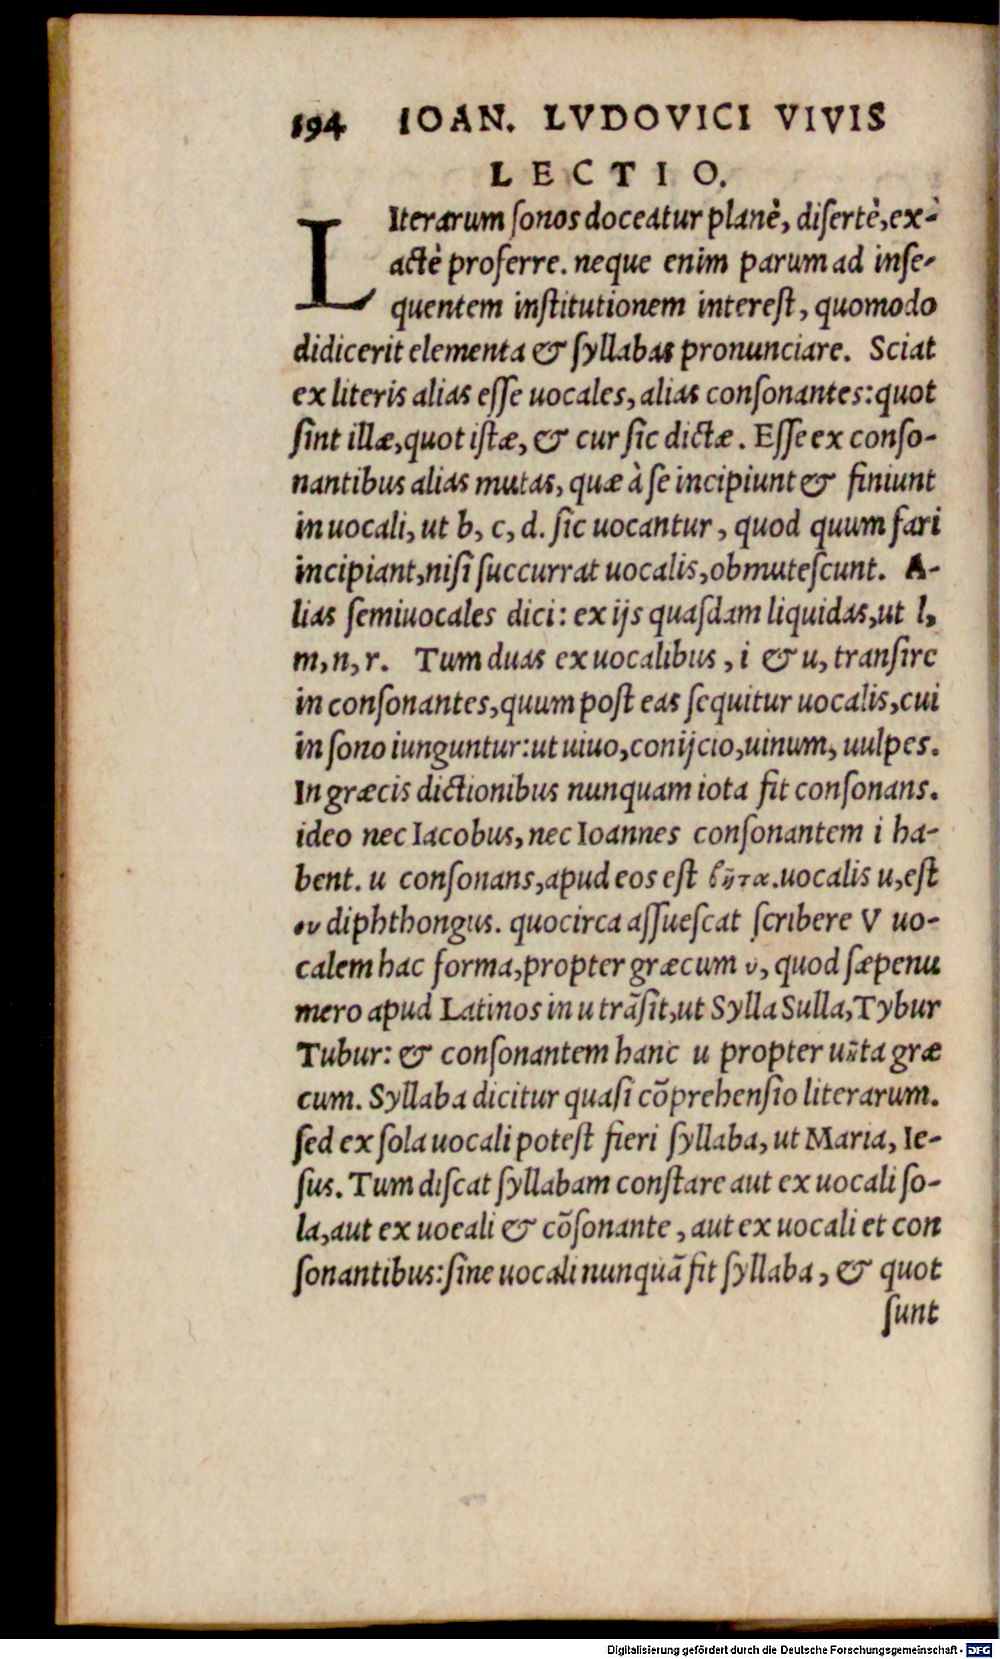 194 IOAN. LVDOVICI VIVIS
LECTIO.
LIterarum ſonos doceatur planè, diſertè, ex-
actè proferre. neque enim parum ad inſe-
quentem inſtitutionem intereſt, quomodo
didicerit elementa & ſyllabas pronunciare. Sciat
ex literis alias eſſe uocales, alias conſonantes: quot
ſint illæ, quot iſtæ, & cur ſic dictæ. Eſſe ex conſo-
nantibus alias mutas, quæ à ſe incipiunt & finiunt
in uocali, ut b, c, d. ſic uocantur, quod quum fari
incipiant, niſi ſuccurrat uocalis, obmuteſcunt. A-
lias ſemiuocales dici: ex ijs quaſdam liquidas, ut l,
m, n, r. Tum duas ex uocalibus, i & u, tranſire
in conſonantes, quum poſt eas ſequitur uocalis, cui
in ſono iunguntur: ut uiuo, conijcio, uinum, uulpes.
In græcis dictionibus nunquam iota fit conſonans.
ideo nec Iacobus, nec Ioannes conſonantem i ha-
bent. u conſonans, apud eos eſt βῆτα. uocalis u, eſt
ου diphthongus. quocirca aſſueſcat ſcribere V uo-
calem hac forma, propter græcum υ, quod ſæpenu
mero apud Latinos in u trãſit, ut Sylla Sulla, Tybur
Tubur: & conſonantem hanc u propter uῆta græ
cum. Syllaba dicitur quaſi cõprehenſio literarum.
ſed ex ſola uocali poteſt fieri ſyllaba, ut Maria, Ie-
ſus. Tum diſcat ſyllabam conſtare aut ex uocali ſo-
la, aut ex uoeali & cõſonante, aut ex uocali et con
ſonantibus: ſine uocali nunquã fit ſyllaba, & quot
ſunt
Digitalisierung gefördert durch die Deutsche Forschungsgemeinschaft - DFG